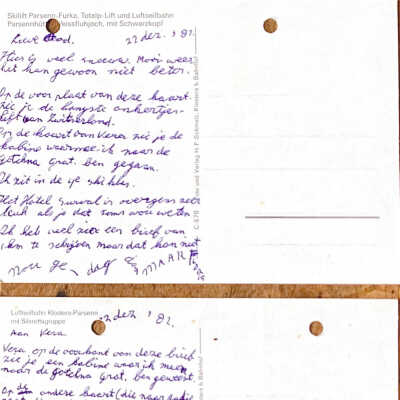 Skilift Parsenn-Furka, Totalp-Lift und Luftseilbahn
Parsennhütte-Weissfluhjoch, mit Schwarzkopf
Lieve 22 dez. '82.
Hier is veel sneeuw. Mooi weer
het kan gewoon niet beter.
Op de voor plaat van deze kaart
zie je de langste
lift van Zwitserland.
Op de kaart van Vera zie je de
kabine waarmee ik naar de
Gotchna Grat. ben gegaan.
Ik zit in de 4e ski klas.
Het Hotel is overigens zeer
leuk als je dat soms wou weten
Ik heb veel zin een brief van
te schrijven maar dat kan niet
nou ge, dag
MAAR
Luftseilbahn Klosters-Parsenn
mit Silvrettagruppe
22 dez '82.
Aan Vera
Vera, op de voorkant van deze brief
zie je een kabine waar ik mee
naar de gotchna Grat. ben geweest.
op de andere kaart (die naar